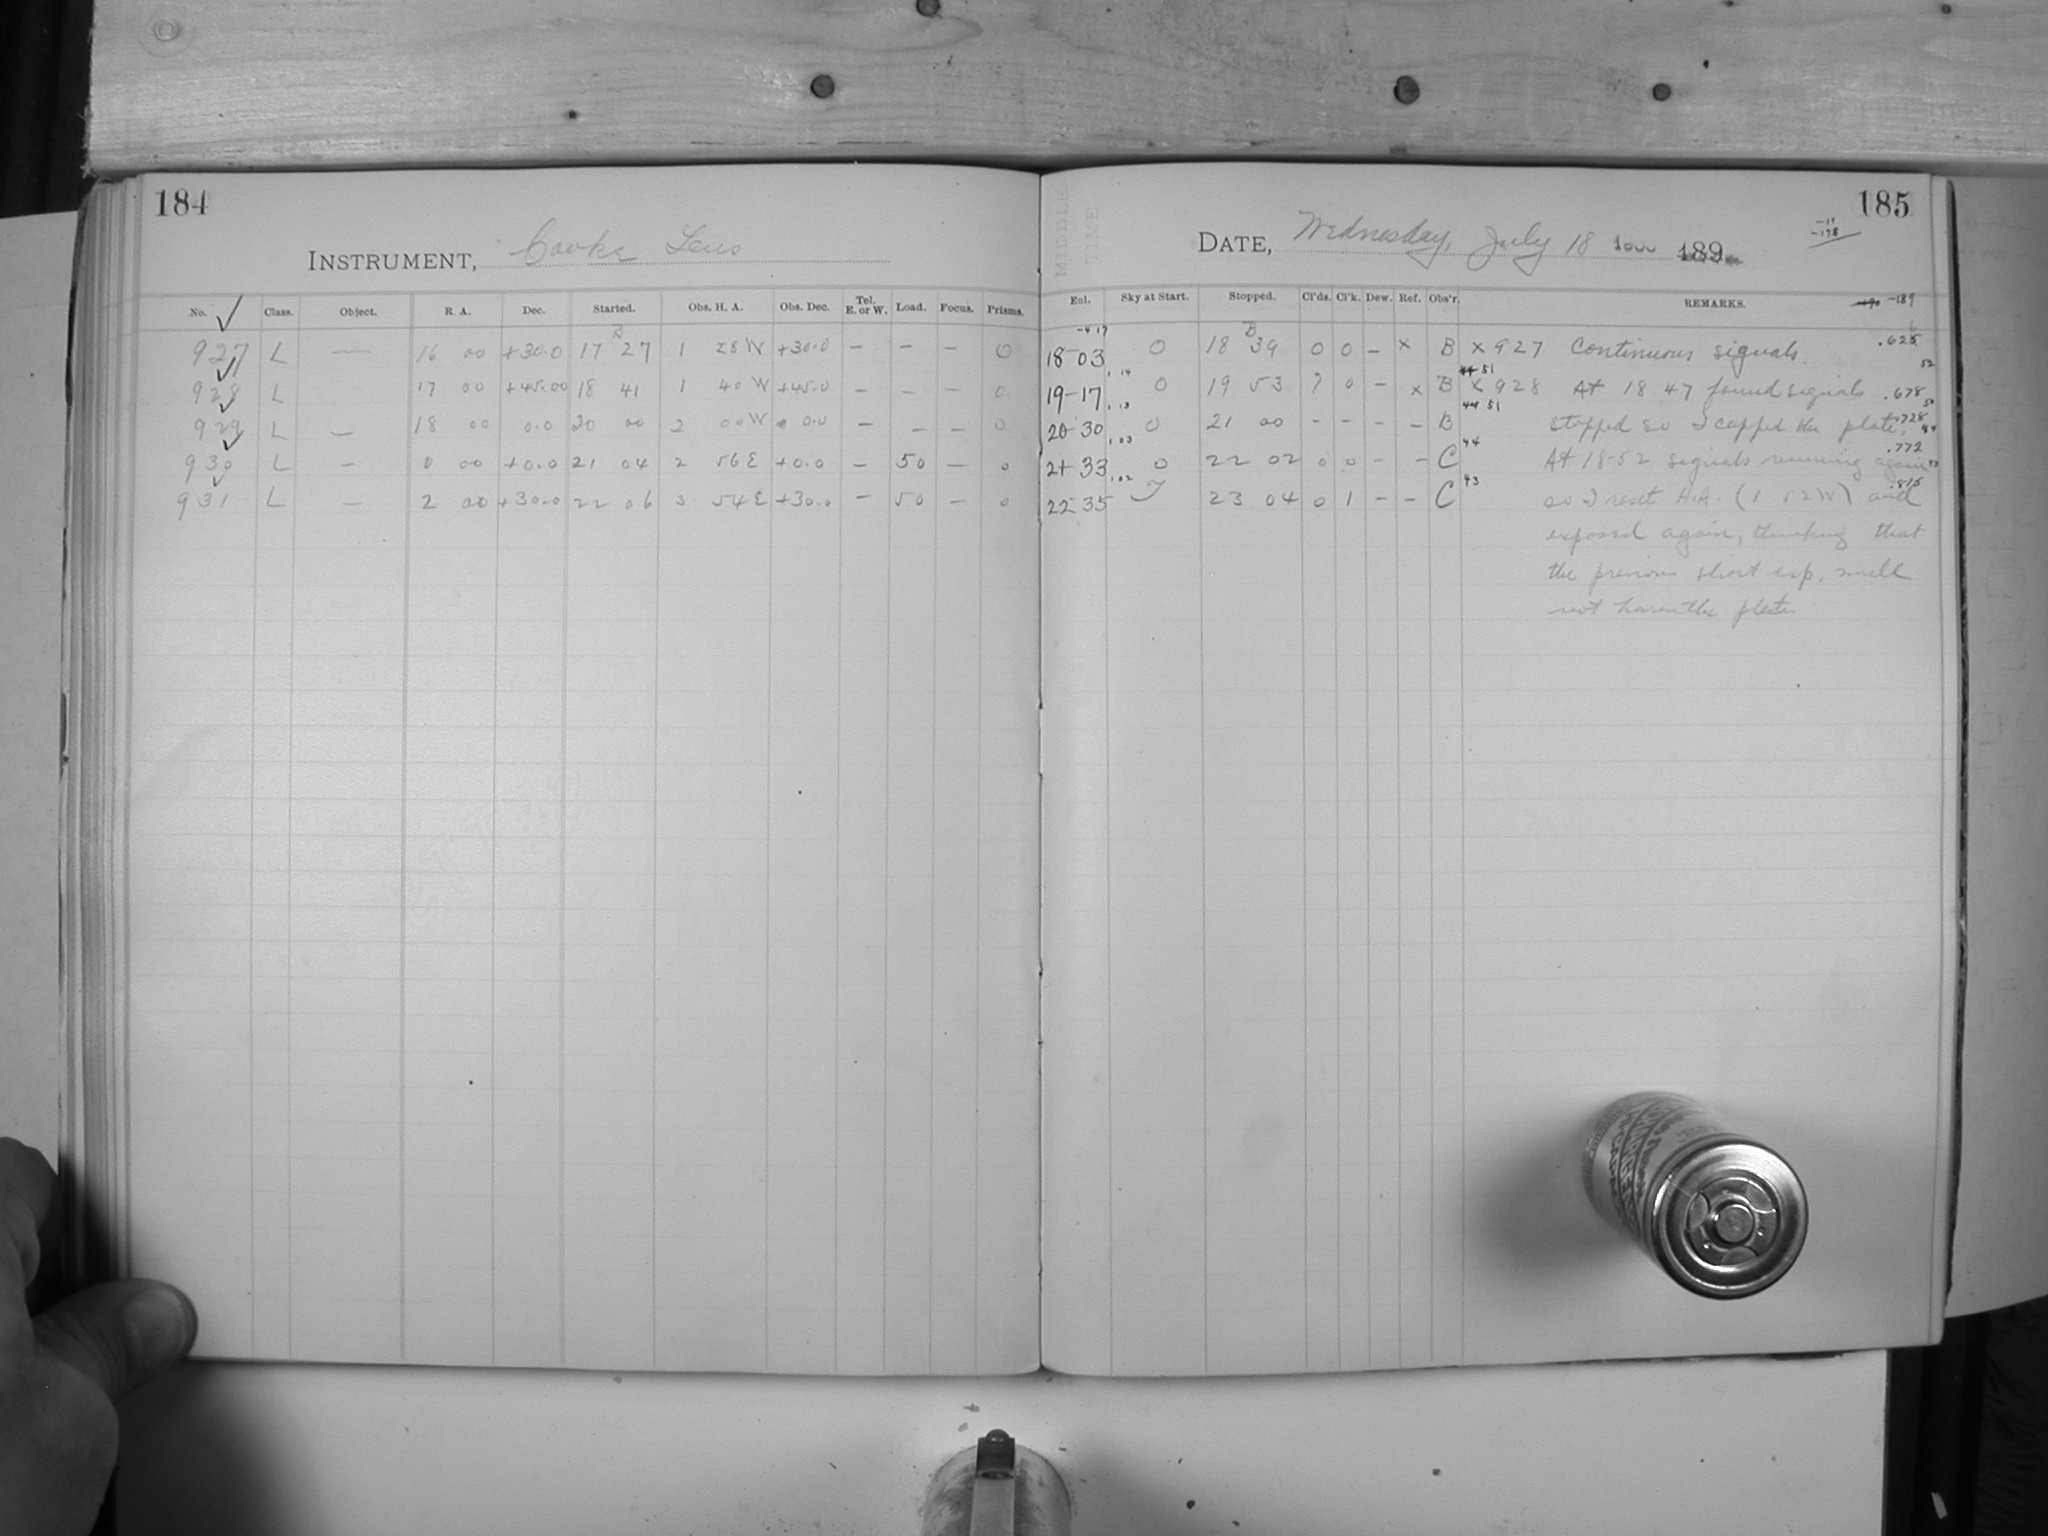 184
INSTRUMENT, Cooke Lens
No. Class. Object. R. A. Dec. Started. Obs. H. A. Obs. Dec. Tel. E. or W. Load. Focus. Prisms.
927 L — 16 00 +30.0 17 27 1 28 W +30.0 — — — 0
928 L 17 00 +45.00 18 41 1 40 W +45.0 — — — 0
929 L — 18 00 0.0 20 00 2 00 W 0.0 — — — 0
930 L — 0 00 +0.0 21 04 2 56 E +0.0 — 50 — 0
931 L — 2 00 +30.0 22 06 3 54 E +30.0 — 50 — 0
185
MIDDLE TIME
DATE, Wednesday, July 18 1900 189
Enl. Sky at Start. Stopped. Cl'ds. Cl'k. Dew. Ref. Obs'r. REMARKS. -189
18-03 0 18 39 0 0 — x B x 927 Continuous signals. .625
19-17 0 19 53 ? 0 — x B x 928 At 18 47 found signals .678
20 30 0 21 00 - - - - B stopped so I capped the plate. .728
21 33 0 22 02 0 0 - - C 44 At 18-52 signals running again .772
22 35 23 04 0 1 - - C 43 so I reset H.A. (1 52 W) and .815
exposed again, thinking that
the previous short exp. would
not harm the plate